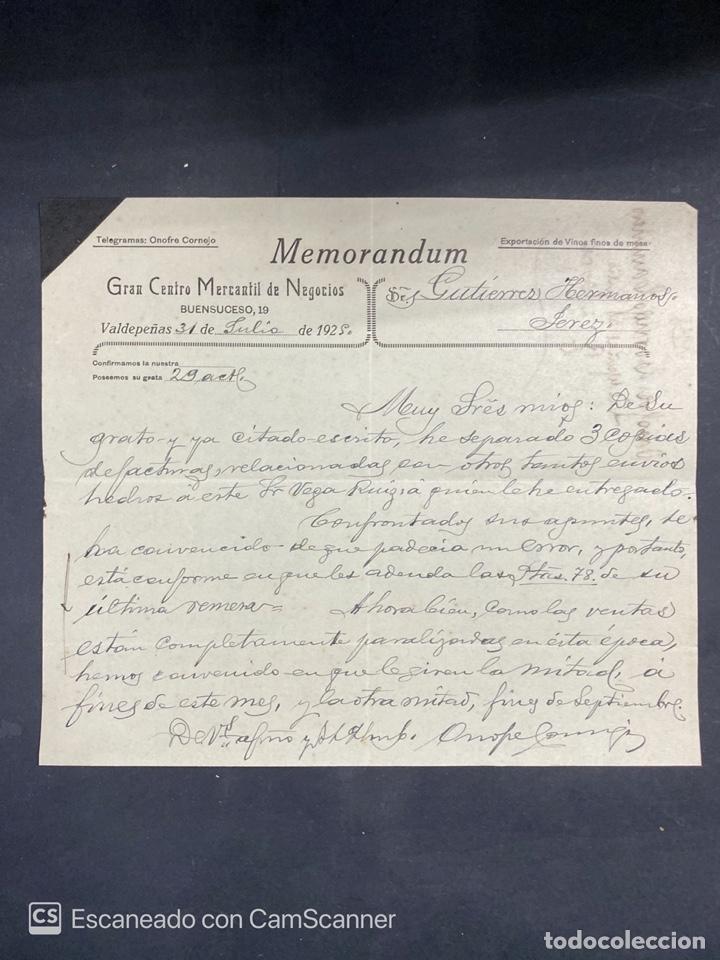 Telegramas: Onofre Cornejo
Exportación de Vinos finos de mesa
Memorandum
Gran Centro Mercantil de Negocios
BUENSUCESO, 19
Valdepeñas 31 de Julio de 1925.
Sres Gutiérrez Hermanos.
Jerez.
Confirmamos la nuestra
Poseemos su grata 29 actl.
Muy Srés mios: De su
grato y ya citado escrito, he separado 3 copias
de facturas, relacionadas con otros tantos envios
hechos á este Sr Vega Ruiz, á quien le he entregado.
Confrontados sus apuntes, se
ha convencido de que padecia un error, y por tanto,
está conforme en que les adeuda las Ptas. 78. de su
última remesa = Ahora bien, como las ventas
están completamente paralizadas en ésta época,
hemos convenido en que le giren la mitad, á
fines de este mes, y la otra mitad, fines de Septiembre.
De Vds afmo y
Onofre Cornejo
CS Escaneado con CamScanner
todocoleccion